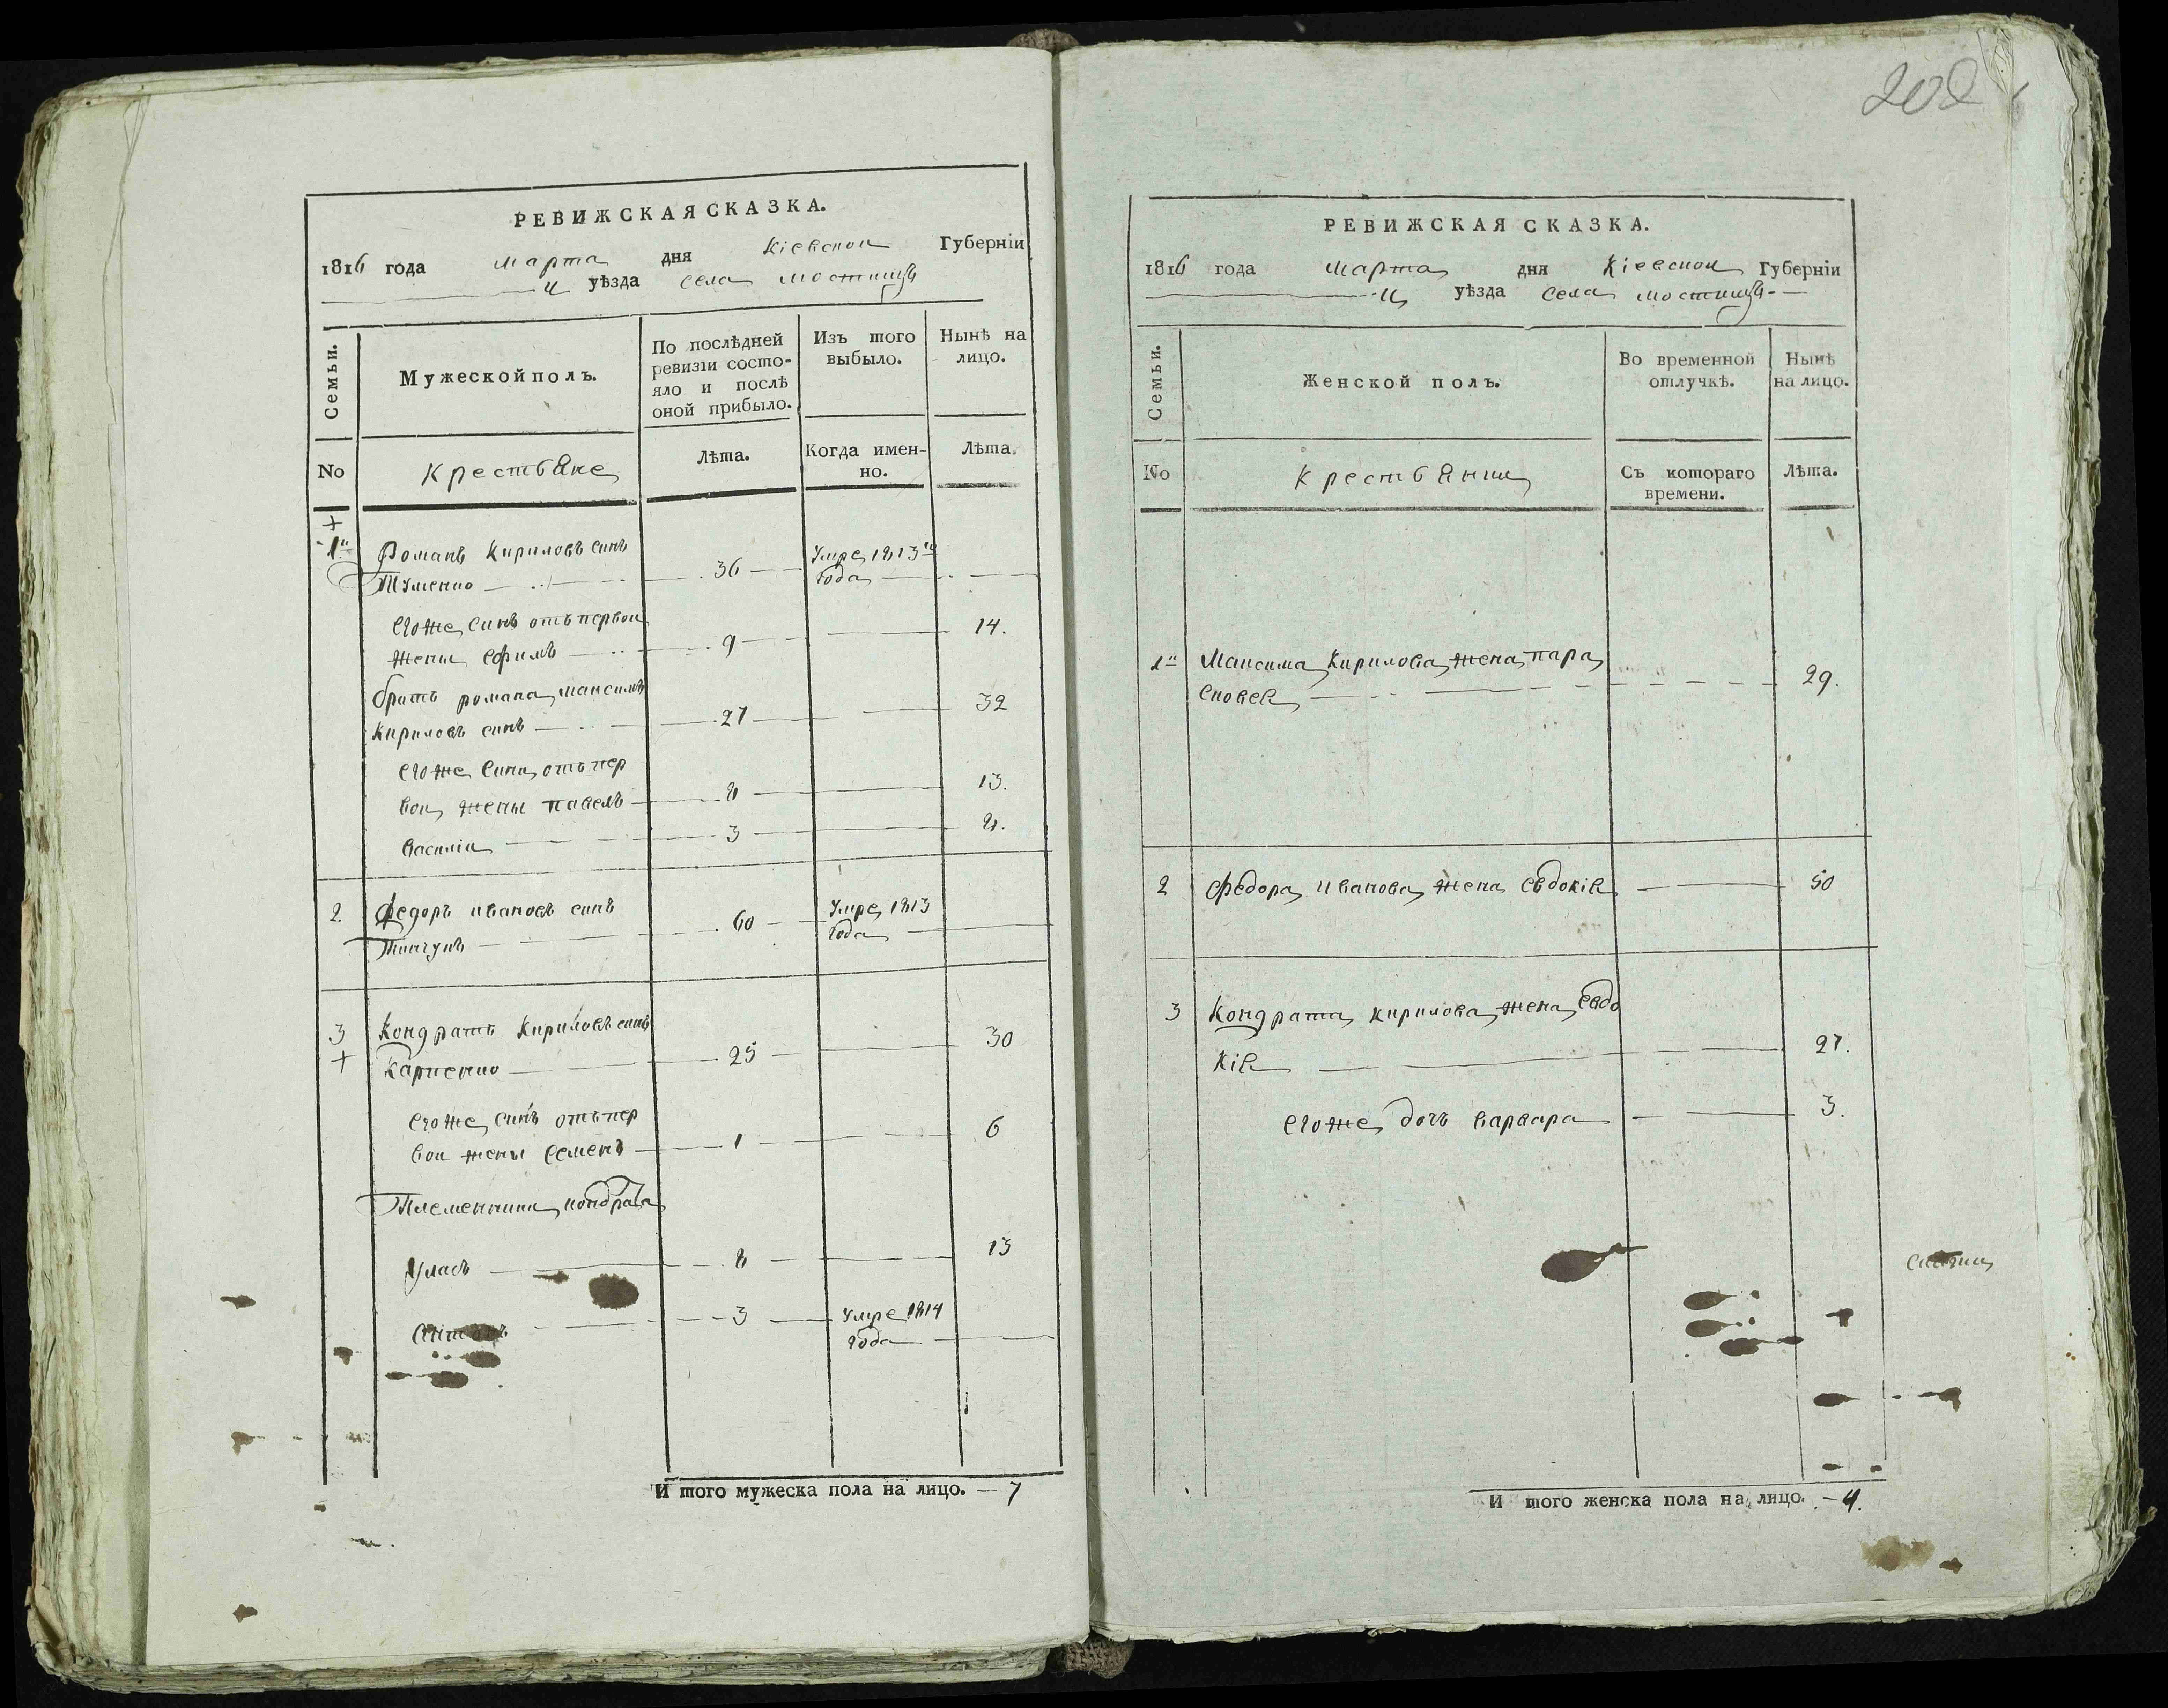 202
РЕВИЖСКАЯ СКАЗКА.
1816 года марта дня Кіевской Губерніи
и уѣзда села мостищъ
Семьи.
Мужеской полъ.
По послѣдней ревизіи состо-
яло и послѣ
оной прибыло.
Изъ того
выбыло.
Нынѣ на
лицо.
No
крестьяне
Лѣта.
Когда имен-
но.
Лѣта.
1й Романъ Кириловъ синъ
36 Умре 1813го
года
его же синъ отъ первой
жены ефимъ 9 14.
братъ романа максимъ
Кириловъ синъ 27 32
его же сини отъ пер
вой жены павелъ 8 13.
василій 3 8.
2. федоръ ивановъ синъ
60 Умре 1813
года
3 Кондратъ Кириловъ синъ
Карпенко 25 30
его же синъ отъ пер
вой жены семенъ 1 6
Племенники кондрата
Уласъ 8 13
3 Умре 1814
года
И того мужеска пола на лицо. — 7
РЕВИЖСКАЯ СКАЗКА.
1816 года марта дня Кіевской Губерніи
и уѣзда села мостищъ
Семьи.
Женской полъ.
Во временной
отлучкѣ.
Нынѣ
на лицо.
No
крестьянки
Съ котораго
времени.
Лѣта.
1й Максима Кирилова жена пара
сковея 29.
2 федора иванова жена евдокія 50
3 Кондрата кирилова жена евдо
кія 27.
его же дочь варвара 3.
И того женска пола на лицо. — 4.